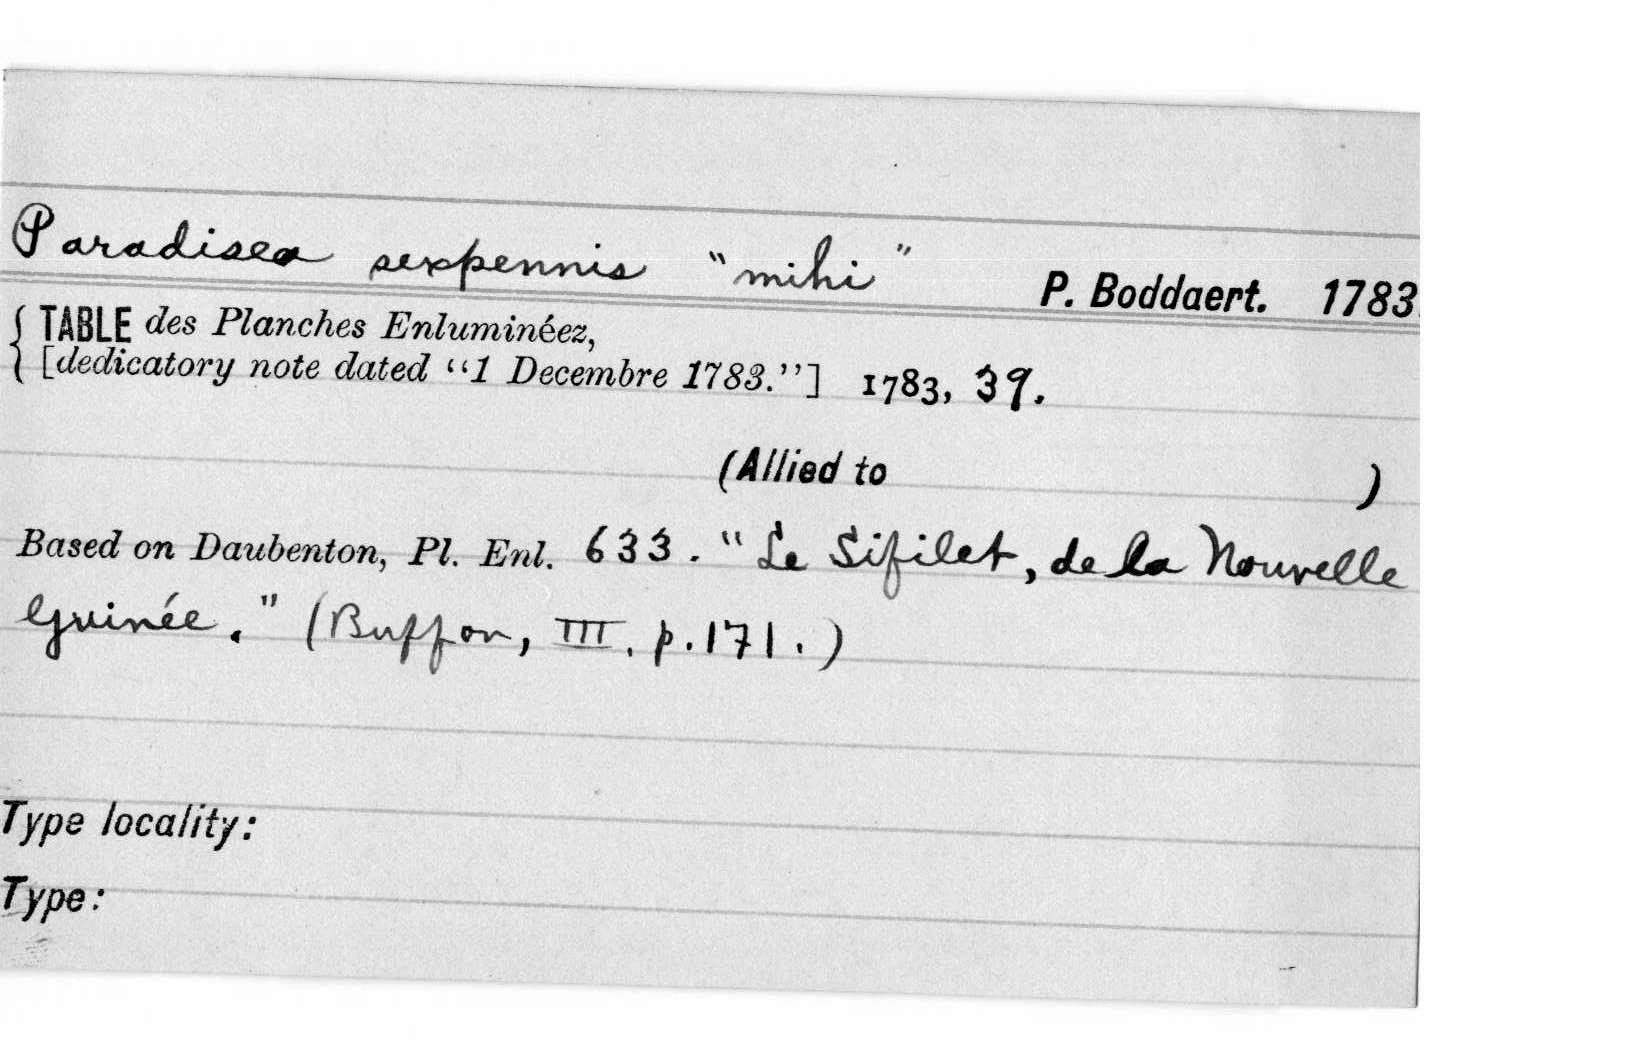 Paradisea sexpennis "mihi" P. Boddaert. 1783.
TABLE des Planches Enluminéez,
[dedicatory note dated “1 Decembre 1783.”] 1783, 39.
(Allied to )
Based on Daubenton, Pl. Enl. 633. "Le Sifilet, de la Nouvelle
Guinée." (Buffon, III, p.171.)
Type locality:
Type: